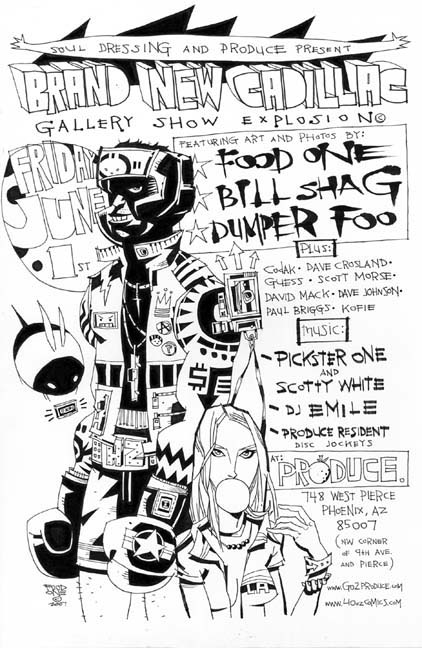 SOUL DRESSING AND PRODUCE PRESENT
BRAND NEW CADILLAC
GALLERY SHOW EXPLOSION©
FRIDAY
JUNE
1ST
FEATURING ART AND PHOTOS BY:
FOOD ONE
BILL SHAG
DUMPER FOO
PLUS:
CODAK · DAVE CROSLAND ·
GUESS · SCOTT MORSE ·
DAVID MACK · DAVE JOHNSON ·
PAUL BRIGGS · KOFIE
MUSIC:
- PICKSTER ONE
AND
SCOTTY WHITE
- DJ EMILE
- PRODUCE RESIDENT
DISC JOCKEYS
AT:
PRODUCE.
748 WEST PIERCE
PHOENIX, AZ
85007
(NW CORNER
OF 9TH AVE.
AND PIERCE)
www.GO2PRODUCE.com
www.40OZCOMICS.com
FOOD
ONE
©
2007